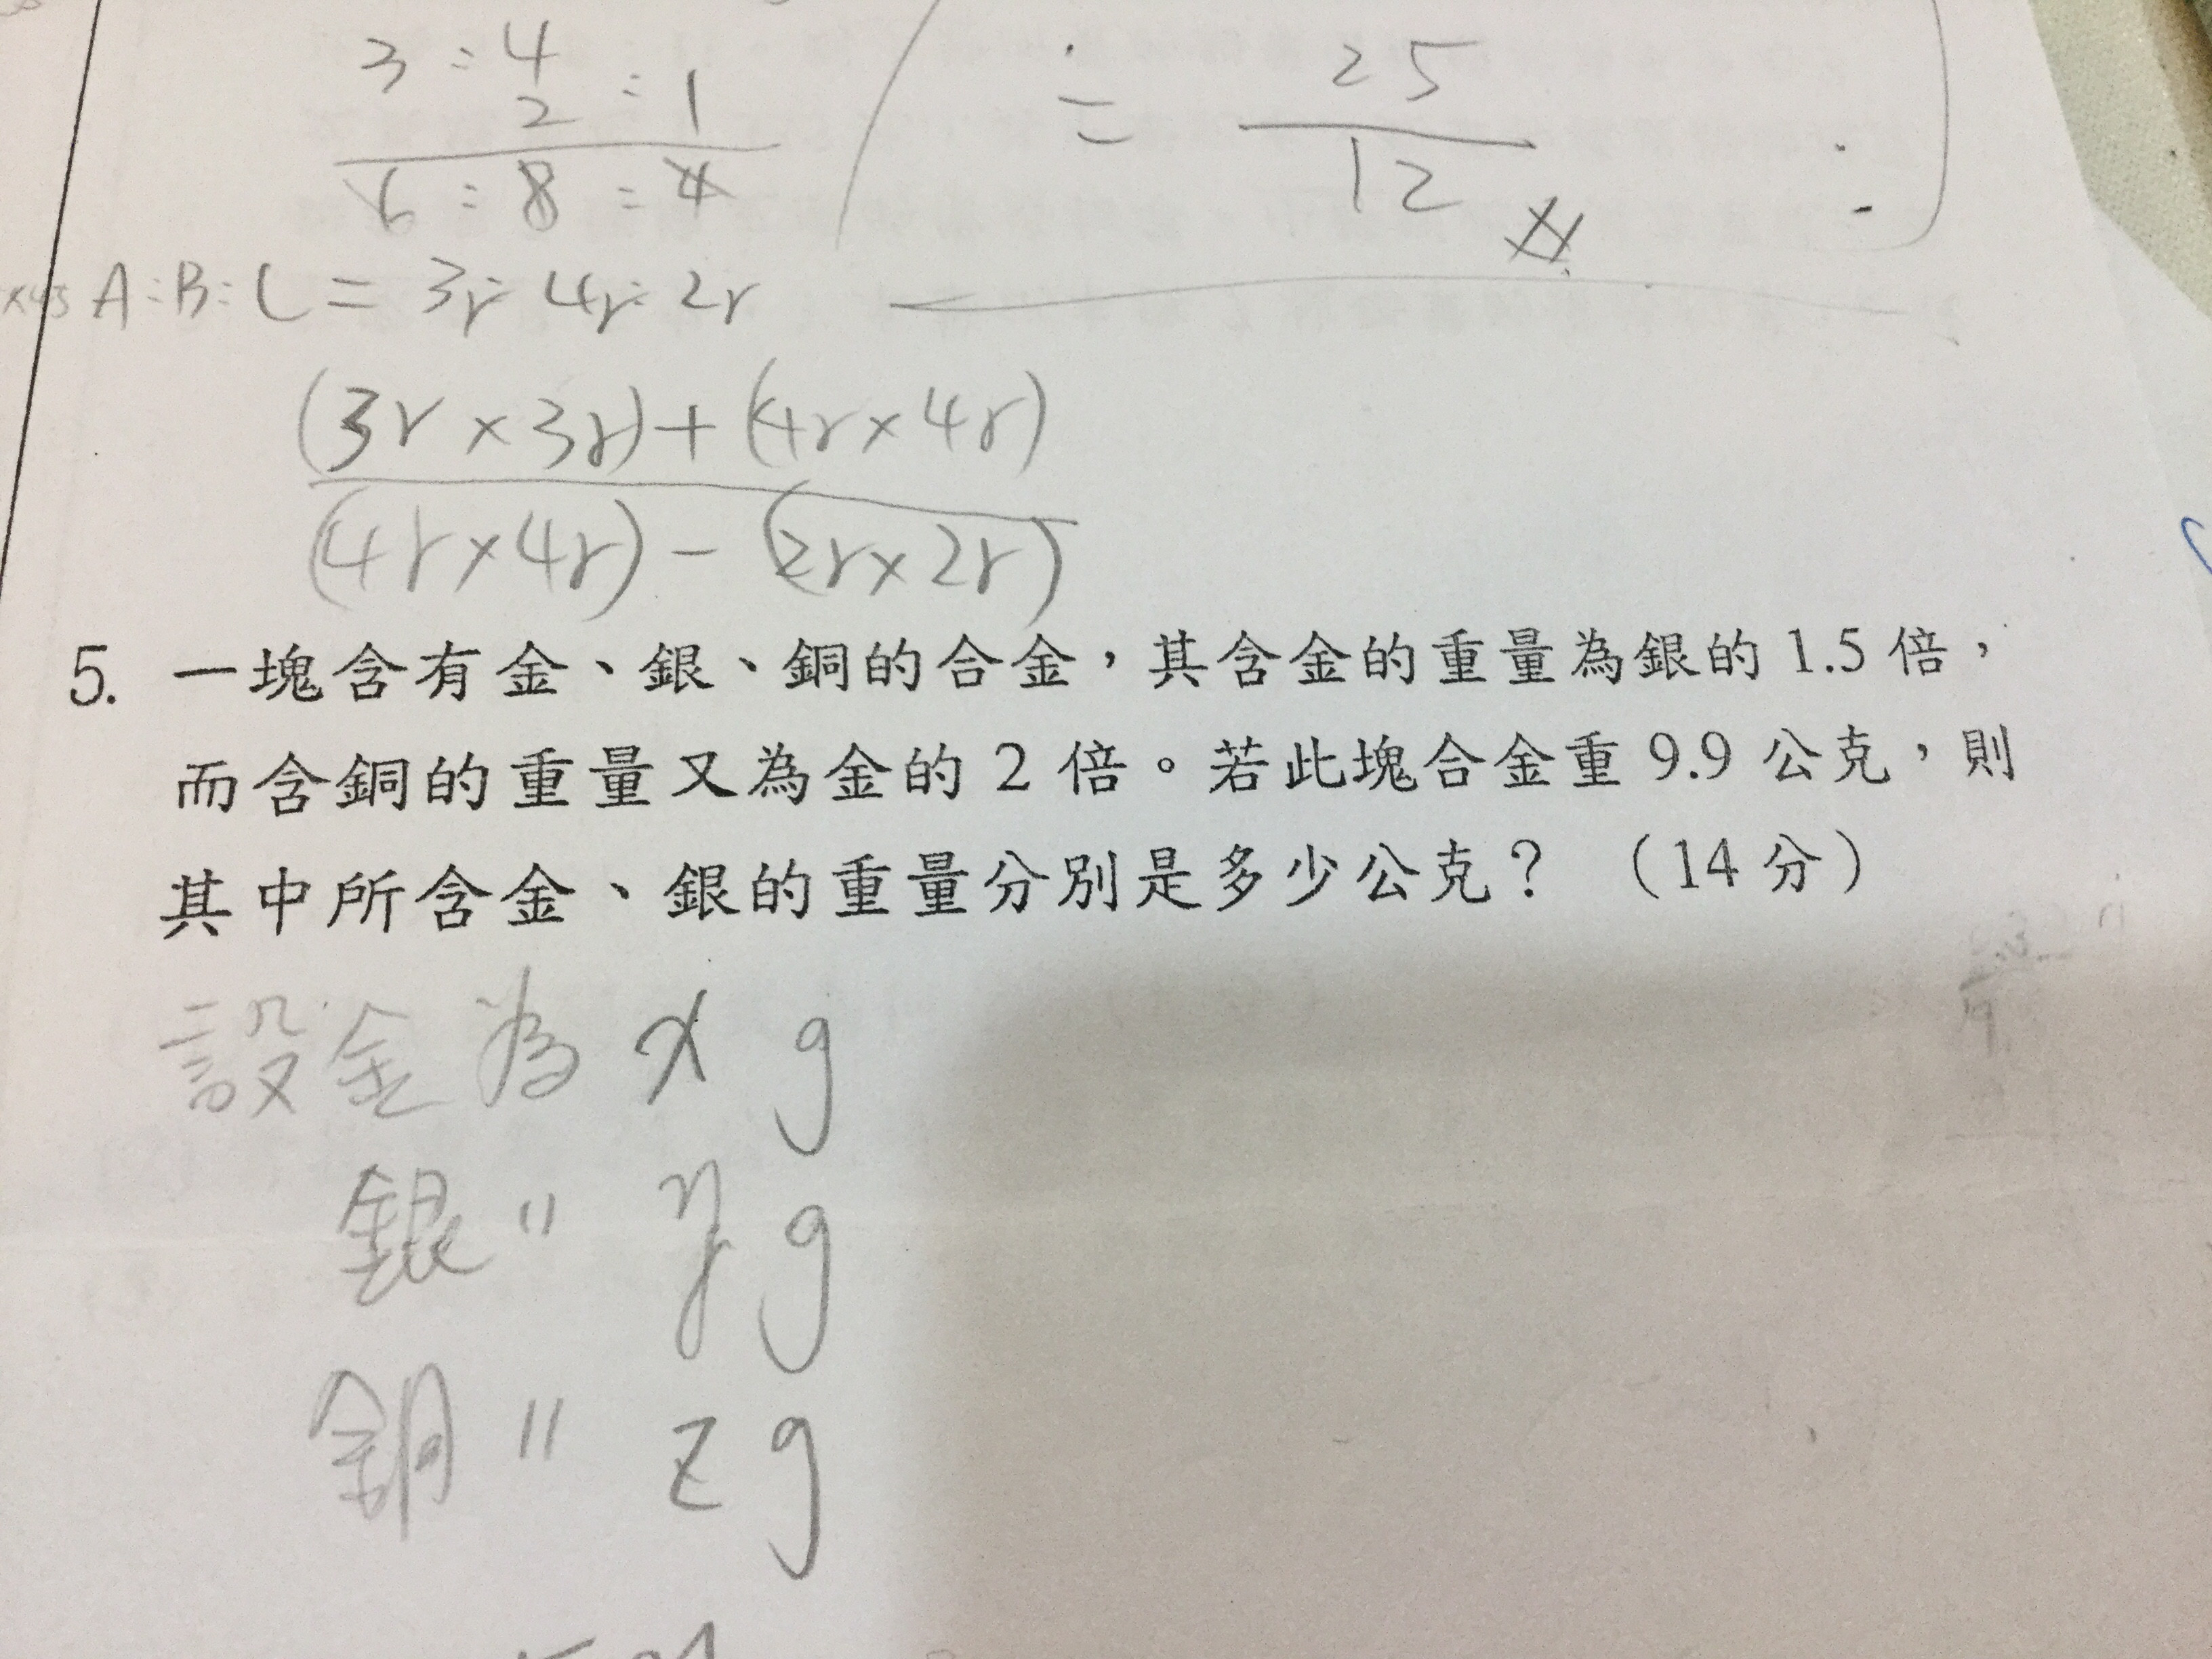 3 : 4
2 : 1
6 : 8 : 4
A : B : C = 3r : 4r : 2r
(3r × 3r) + (4r × 4r)
(4r × 4r) - (2r × 2r)
= 25
12
5. 一塊含有金、銀、銅的合金，其含金的重量為銀的 1.5 倍，
而含銅的重量又為金的 2 倍。若此塊合金重 9.9 公克，則
其中所含金、銀的重量分別是多少公克？ （14 分）
設金為 x g
銀 〃 y g
銅 〃 z g